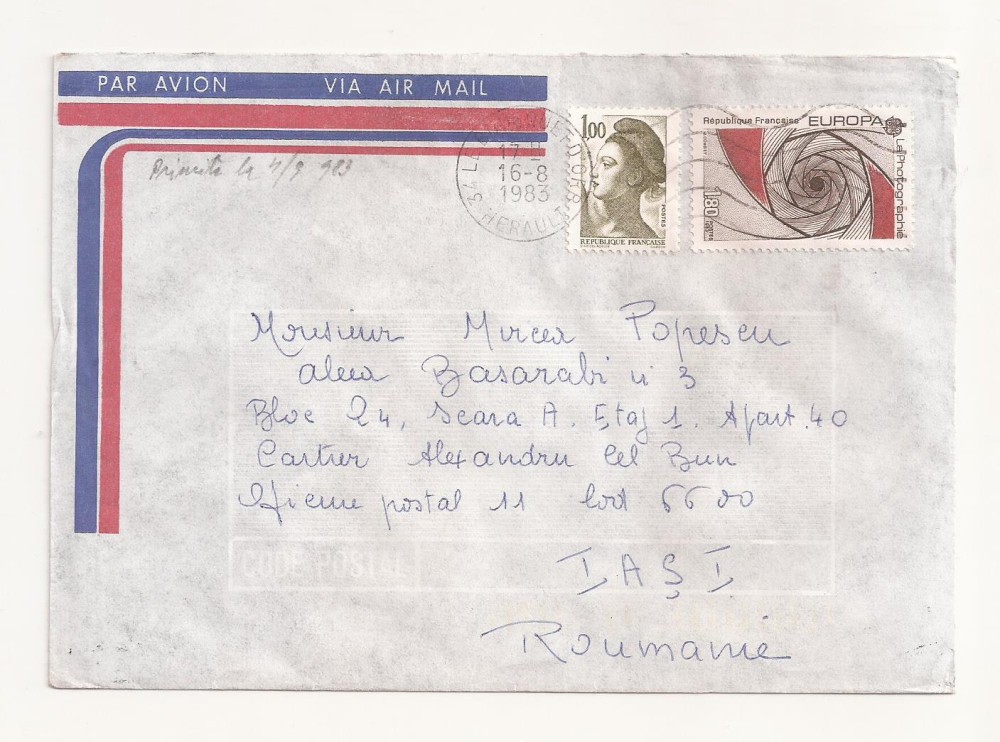 PAR AVION VIA AIR MAIL
Primită la 4/9 983
34 HERAULT
17-H
16-8
1983
1.00
POSTES
REPUBLIQUE FRANÇAISE
République Française EUROPA
La Photographie
1.80
POSTES
Monsieur Mircea Popescu
aleea Basarabi n° 3
Bloc D4, Scara A. Etaj 1. Apart. 40
Cartier Alexandru Cel Bun
Oficiu postal 11 Cod 6600
CODE POSTAL
IAŞI
Roumanie